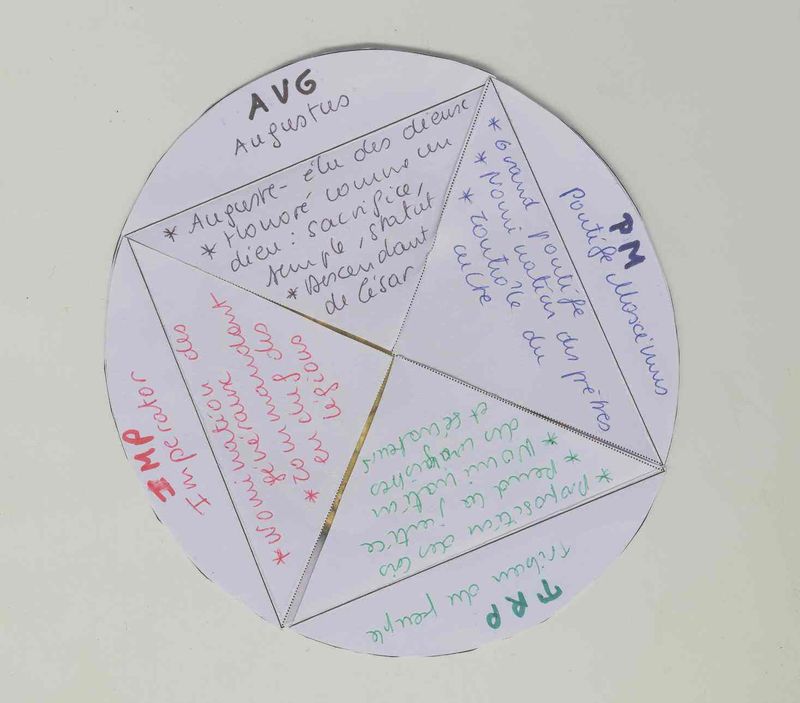 AVG
Augustus
* Auguste - élu des dieux
* Honoré comme un
dieu : sacrifice,
temple, statut
* Descendant
de César
PM
Pontife Moscimus
* Grand pontife
* Nomination des prêtres
* Contrôle du
culte
TRP
Tribun du peuple
* Proposition des lois
* Rend la justice
* Nomination
des magistrats
et sénateurs
IMP
Imperator
* Nomination des
généraux
* Commandant
en chef des
légions